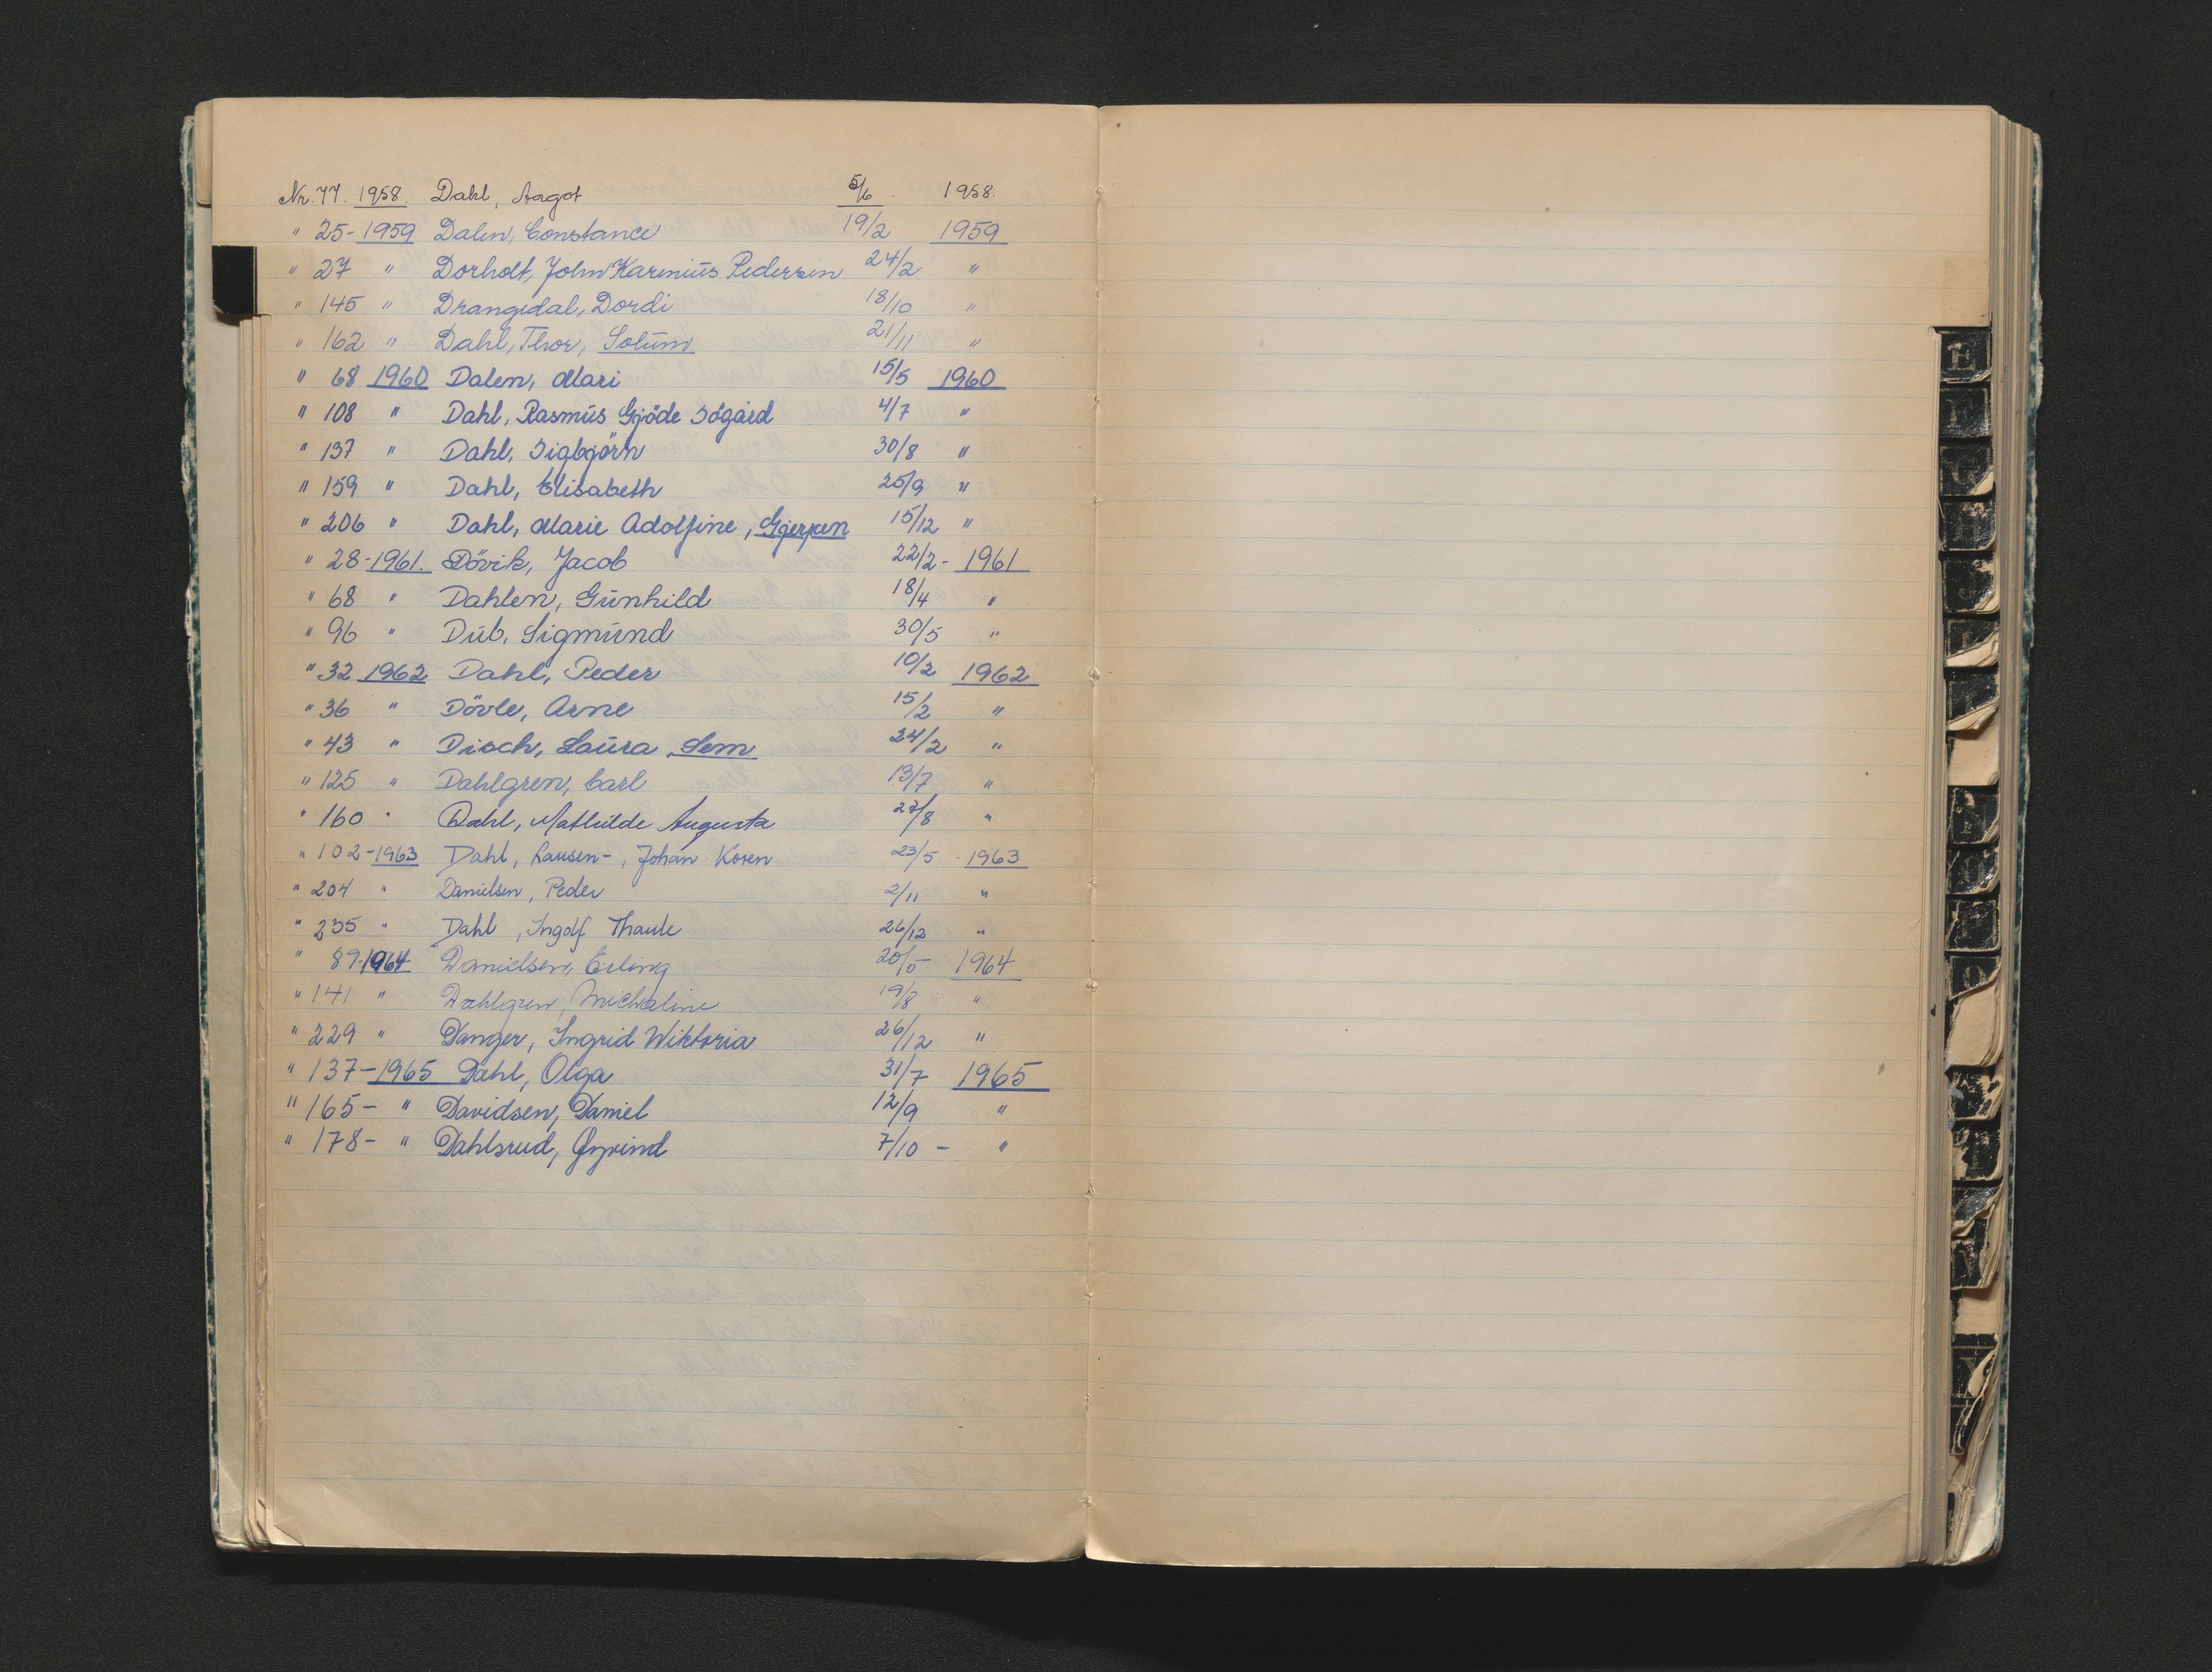 Nr. 77. 1958. Dahl, Aagot 5/6. 1958.
" 25-1959 Dalen, Constance 19/2 1959
" 27 " Dorholt, John Karenius Pedersen 24/2 "
" 145 " Drangedal, Dordi 18/10 "
" 162 " Dahl, Thor, Solum 21/11 "
" 68 1960 Dalen, Mari 15/5 1960
" 108 " Dahl, Rasmus Gjöde Sögård 4/7 "
" 137 " Dahl, Sigbjörn 30/8 "
" 159 " Dahl, Elisabeth 25/9 "
" 206 " Dahl, Marie Adolfine, Gjerpen 15/12 "
" 28-1961. Dövik, Jacob 22/2 - 1961
" 68 " Dahlen, Gunhild 18/4 "
" 96 " Dub, Sigmund 30/5 "
" 32 1962 Dahl, Peder 10/2 1962
" 36 " Dövle, Arne 15/2 "
" 43 " Disch, Laura, Sem 24/2 "
" 125 " Dahlgren, Carl 13/7 "
" 160 " Dahl, Mathilde Augusta 27/8 "
" 102-1963 Dahl, Rausen-, Johan Koren 23/5 - 1963
" 204 " Danielsen, Peder 2/11 "
" 235 " Dahl, Ingolf Thaule 26/12 "
" 89-1964 Danielsen, Erling 20/5 1964
" 141 " Dahlgren, Micheline 19/8 "
" 229 " Danger, Ingrid Wiktoria 26/12 "
" 137-1965 Dahl, Olga 31/7 1965
" 165- " Davidsen, Daniel 12/9 "
" 178- " Dahlsrud, Øyvind 7/10 - "
E
F
G
H